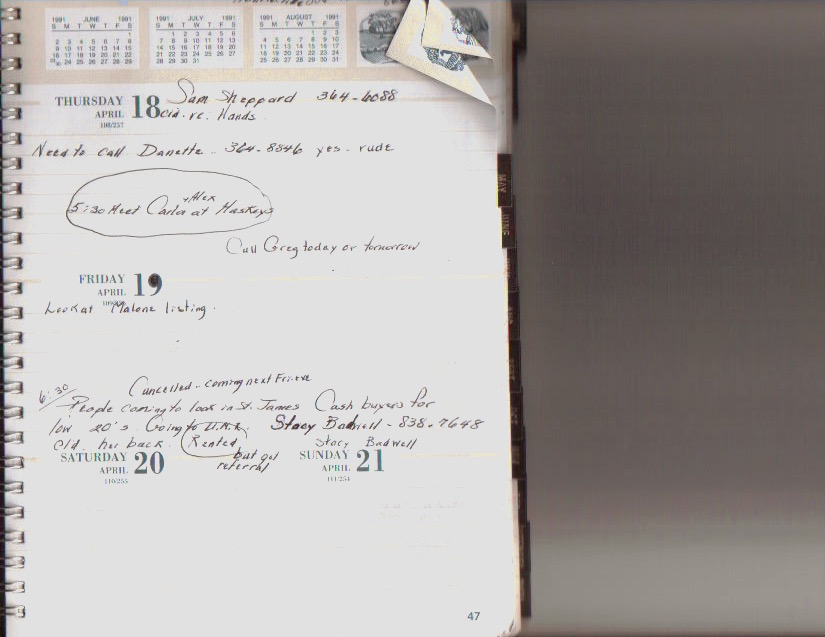 1991 JUNE 1991
S M T W T F S
1
2 3 4 5 6 7 8
9 10 11 12 13 14 15
16 17 18 19 20 21 22
23/30 24 25 26 27 28 29
1991 JULY 1991
S M T W T F S
1 2 3 4 5 6
7 8 9 10 11 12 13
14 15 16 17 18 19 20
21 22 23 24 25 26 27
28 29 30 31
1991 AUGUST 1991
S M T W T F S
1 2 3
4 5 6 7 8 9 10
11 12 13 14 15 16 17
18 19 20 21 22 23 24
25 26 27 28 29 30 31
THURSDAY 18 Sam Sheppard 364-6088
APRIL Cld. re. Hands
108/257
Need to call Danette - 364-8846 yes - rude
+ Alex
5:30 Meet Carla at Haskeys
Call Greg today or tomorrow
FRIDAY 19
APRIL
Look at Malone listing.
Cancelled - coming next Fri. eve
6:30 People coming to look in St. James Cash buyers for
low 20's Going to Stacy Badwell - 838-7648
Cld. her back. Rented Stacy Badwell
but got
referral
SATURDAY 20
APRIL
110/255
SUNDAY 21
APRIL
111/254
MAY
47